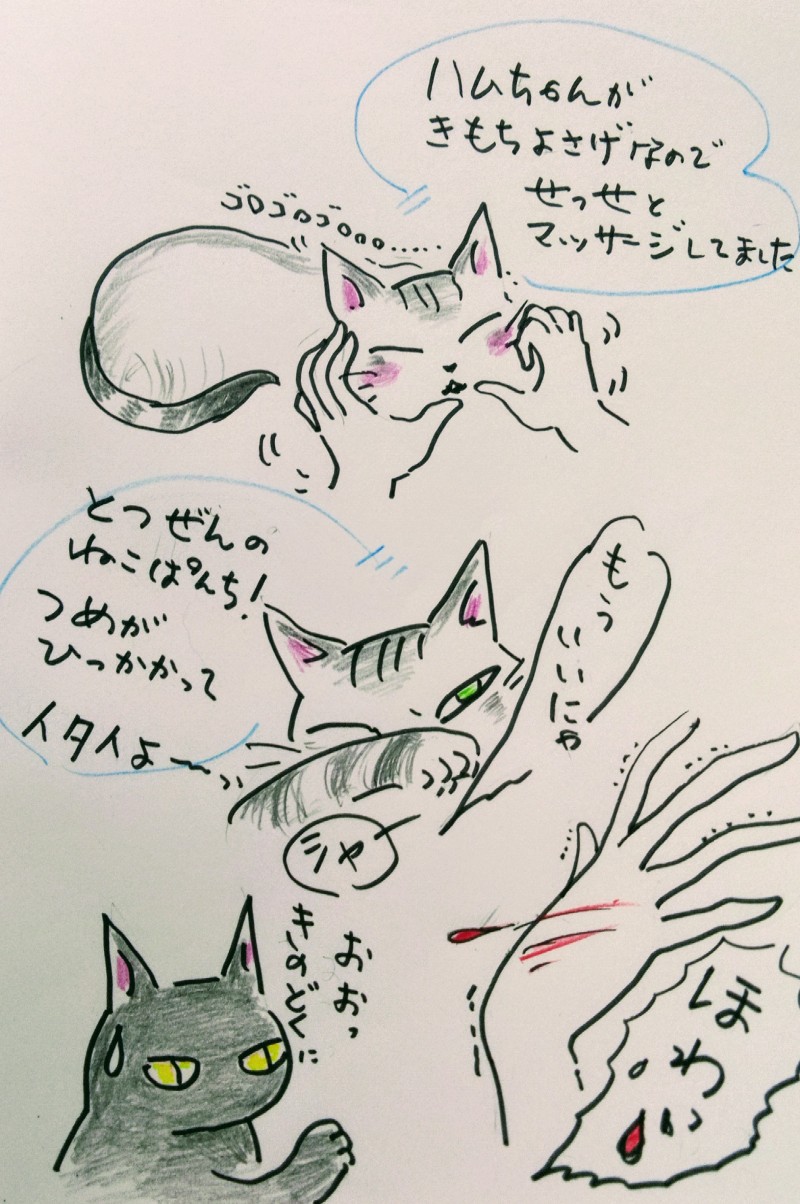 ハムちゃんが
きもちよさげなので
せっせと
マッサージしてました
ゴロゴロゴロ……
とつぜんの
ねこぱんち!
つめが
ひっかかって
イタイよ〜
もう
いいにゃ
シャー
おおっ
きのどくに
ほわい